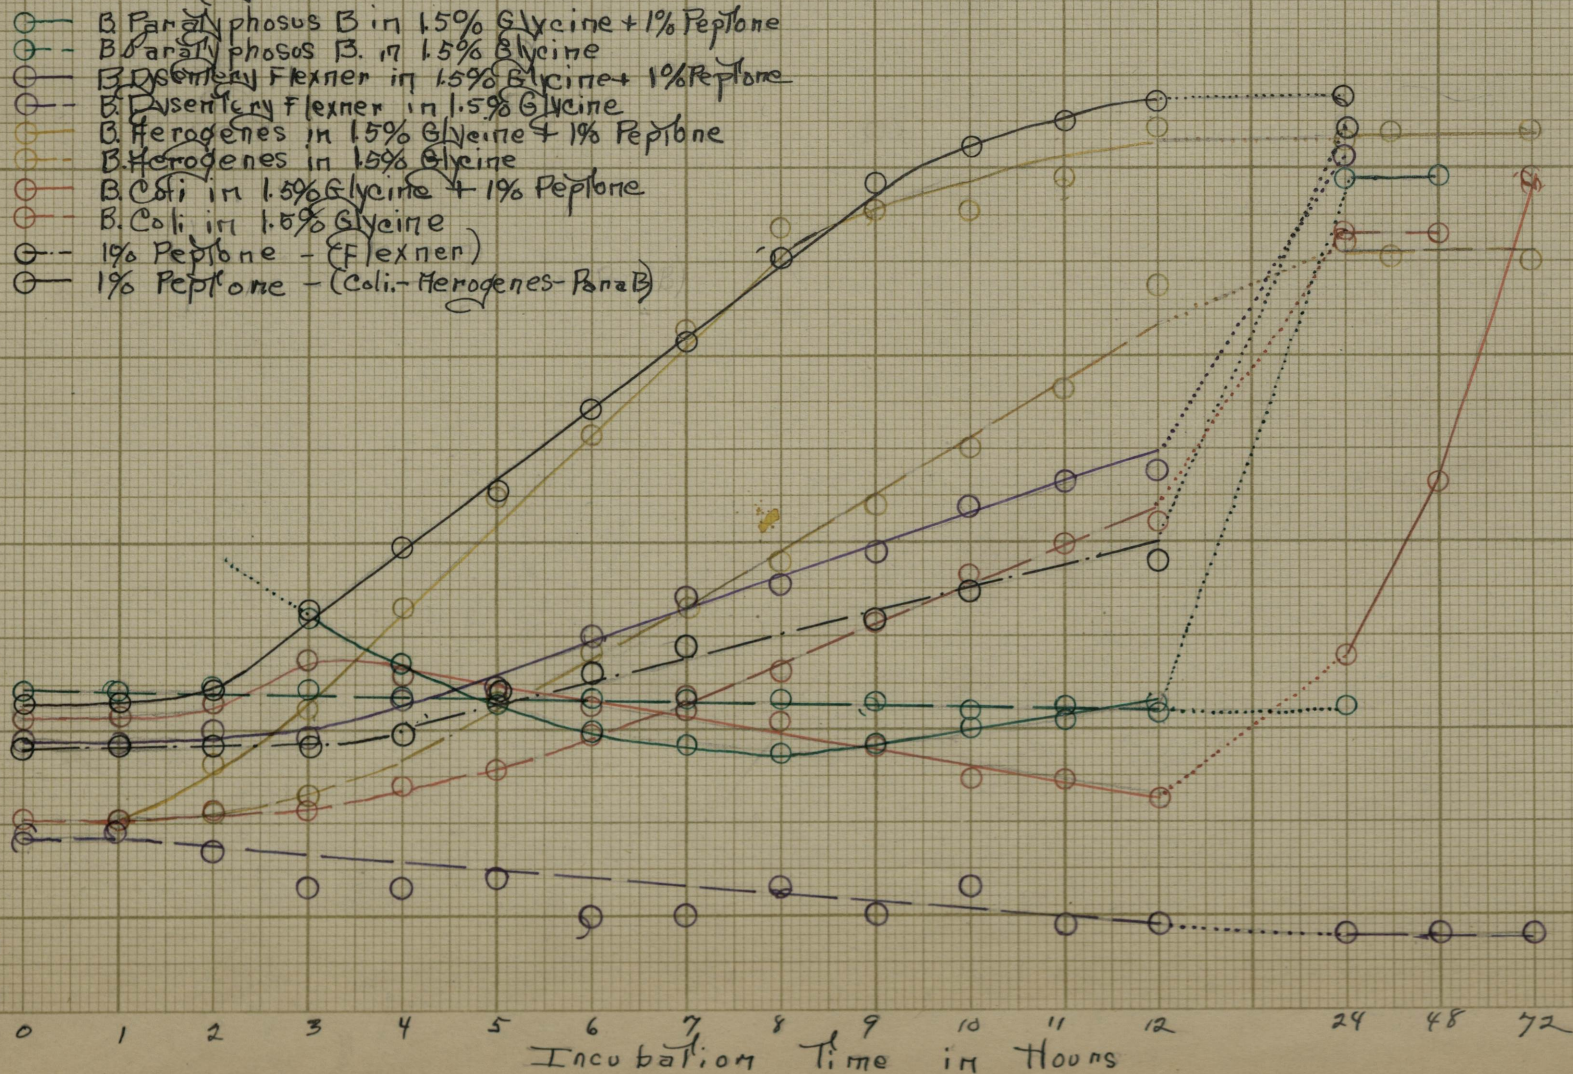 B. Paratyphosus B in 1.5% Glycine + 1% Peptone
B. Paratyphosos B. in 1.5% Glycine
B. Dysentery Flexner in 1.5% Glycine + 1% Peptone
B. Dysentery Flexner in 1.5% Glycine
B. Aerogenes in 1.5% Glycine + 1% Peptone
B. Aerogenes in 1.5% Glycine
B. Coli in 1.5% Glycine + 1% Peptone
B. Coli in 1.5% Glycine
1% Peptone - (Flexner)
1% Peptone - (Coli.-Aerogenes-Para B)
0 1 2 3 4 5 6 7 8 9 10 11 12 24 48 72
Incubation Time in Hours